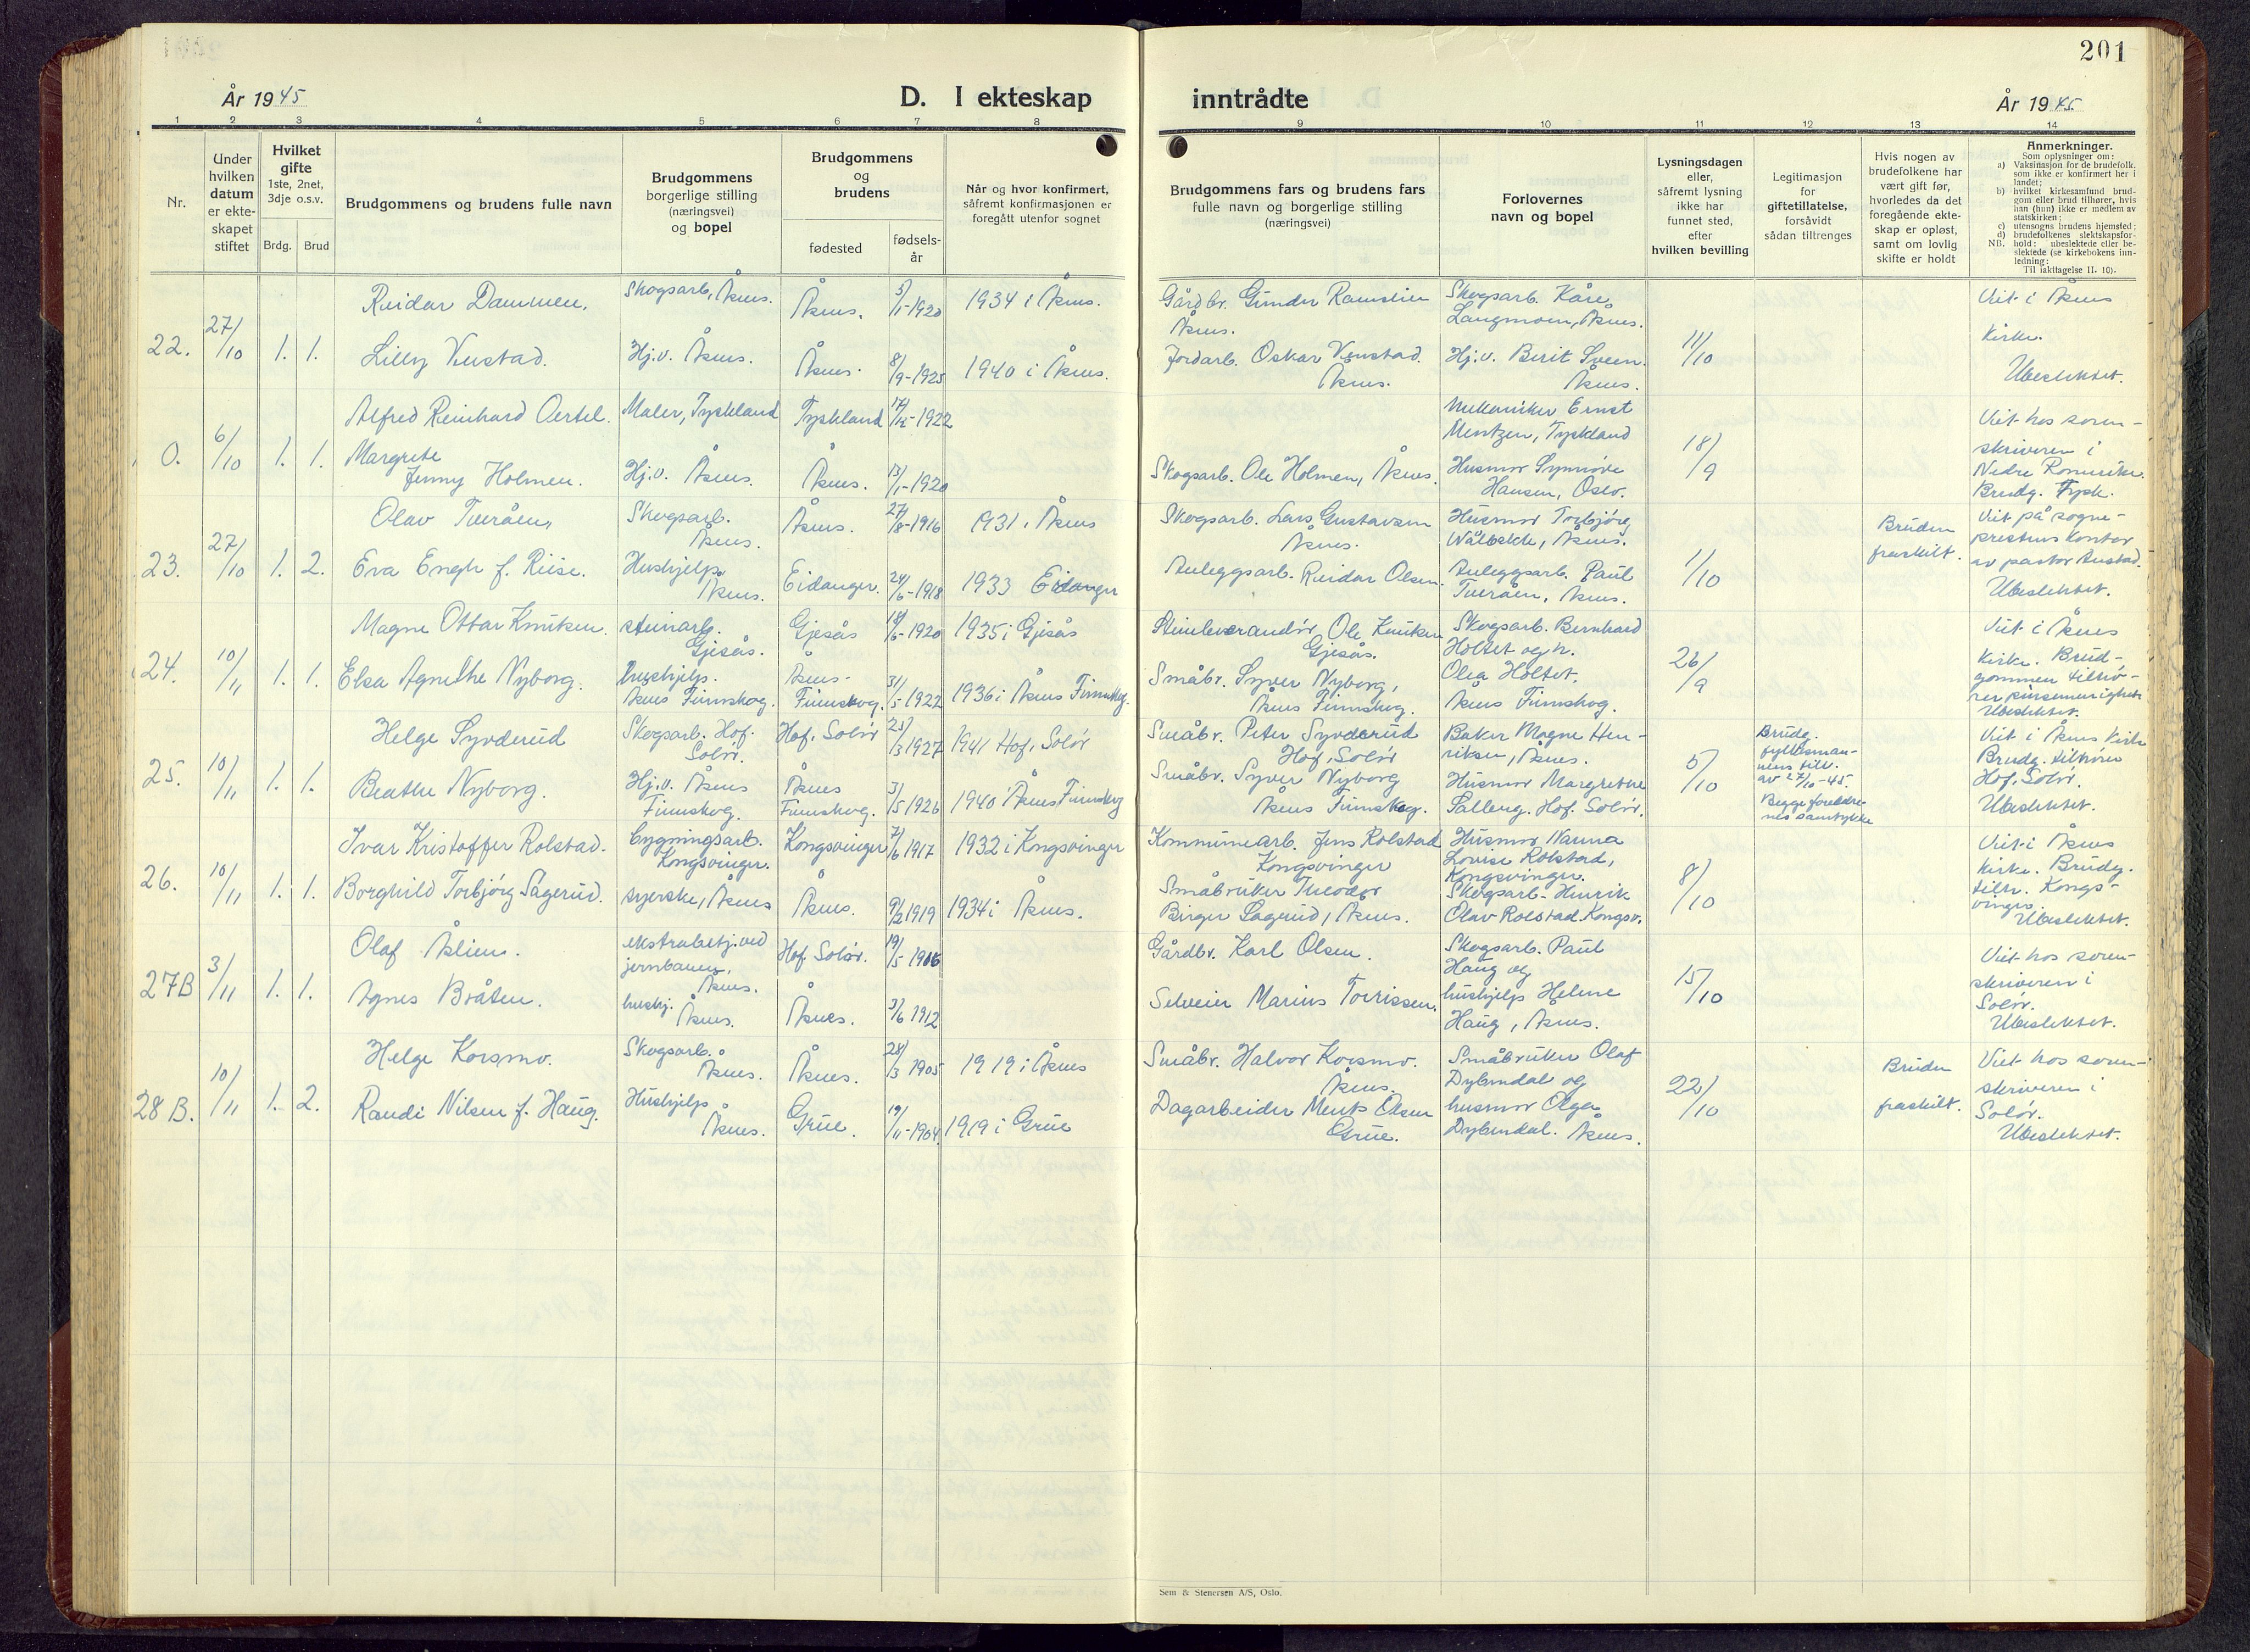 201
År 1945
D. I ekteskap
inntrådte
År 1945
1 2 3 4 5 6 7 8 9 10 11 12 13 14
Nr.
Under
hvilken
datum
er ekte-
skapet
stiftet
Hvilket
gifte
1ste, 2net,
3dje o.s.v.
Brdg. Brud
Brudgommens og brudens fulle navn
Brudgommens
borgerlige stilling
(næringsvei)
og bopel
Brudgommens
og
brudens
fødested
fødsels-
år
Når og hvor konfirmert,
såfremt konfirmasjonen er
foregått utenfor sognet
Brudgommens fars og brudens fars
fulle navn og borgerlige stilling
(næringsvei)
Forlovernes
navn og bopel
Lysningsdagen
eller,
såfremt lysning
ikke har
funnet sted,
efter
hvilken bevilling
Legitimasjon
for
giftetillatelse,
forsåvidt
sådan tiltrenges
Hvis nogen av
brudefolkene har
vært gift før,
hvorledes da det
foregående ekte-
skap er opløst,
samt om lovlig
skifte er holdt
Anmerkninger.
Som oplysninger om:
a) Vaksinasjon for de brudefolk,
som ikke er konfirmert her i
landet;
b) hvilket kirkesamfund brud-
gom eller brud tilhører, hvis
han (hun) ikke er medlem av
statskirken;
c) utensogns brudens hjemsted;
d) brudefolkenes slektskapsfor-
NB. hold: ubeslektede eller be-
slektede (se kirkebokens inn-
ledning:
Til iakttagelse II. 10).
22. 27/10 1. 1.
Reidar Dammen.
Skogsarb, Åsnes.
Åsnes.
5/1-1920
1934 i Åsnes.
Gårdbr. Gunder Ramslien
Åsnes.
Skogsarb. Kåre
Langmoen, Åsnes.
11/10
Viet i Åsnes
Kirke.
Ubeslektet.
Lilly Venstad.
Hj.v. Åsnes.
Åsnes.
8/9-1925
1940 i Åsnes.
Jordarb. Oskar Venstad.
Åsnes.
Hj.v. Berit Sveen.
Åsnes.
0. 6/10 1. 1.
Alfred Reinhard Oertel.
Maler, Tyskland
Tyskland
1922
Mekaniker Ernst
Mentzen, Tyskland
18/9
Viet hos soren-
skriveren i
Nedre Romerike.
Brudg. Tysk.
Margrete
Jenny Holmen.
Hj.v. Åsnes.
Åsnes.
13/1-1920
Skogsarb. Ole Holmen, Åsnes.
Husmor Synnøve
Hansen, Oslo.
23. 27/10 1. 2.
Olav Tveråen,
Skogsarb.
Åsnes.
Åsnes.
27/8-1916
1931 i Åsnes
Skogsarb. Lars Gustavsen
Åsnes.
Husmor Torbjørg
Wålbekk, Åsnes.
1/10
Bruden
fraskilt.
Viet på sogne-
prestens Kontor
av pastor Austad.
Ubeslektet.
Eva Engh f. Riise.
Hushjelp
Åsnes.
Eidanger.
24/6-1918
1933 Eidanger
Anleggsarb. Reidar Olsen.
Anleggsarb. Paul
Tveråen, Åsnes.
24. 10/11 1. 1.
Magne Ottar Knutsen.
steinarb.
Gjesås.
Gjesås
18/6-1920
1935 i Gjesås
Steinleverandør Ole Knutsen
Gjesås.
Skogsarb. Bernhard
Holtet og h.
Olea Holtet.
Åsnes Finnskog.
26/9
Viet i Åsnes
Kirke. Brud-
gommen tilhø-
rer pinsemenighet
Ubeslektet.
Elsa Agnethe Nyborg.
hushjelp.
Åsnes Finnskog.
Åsnes-
Finnskog.
31/5-1922
1936 i Åsnes Finnskog.
Småbr. Syver Nyborg,
Åsnes Finnskog.
25. 10/11 1. 1.
Helge Syvderud
Skogsarb. Hof.
Solør.
Hof, Solør
23/3 1927
1941 Hof, Solør
Småbr. Peter Syvderud
Hof, Solør
Baker Magne Hen-
riksen, Åsnes.
5/10
Brudg.
fylkesman-
nens till.
av 27/10-45.
Begge foreldre-
nes samtykke
Viet i Åsnes Kirke
Brudg. tilhører
Hof, Solør.
Ubeslektet.
Beathe Nyborg.
Hj.v. Åsnes
Finnskog.
Åsnes
Finnskog.
3/5 1926
1940 i Åsnes Finnskog
Småbr. Syver Nyborg
Åsnes Finnskog.
Husmor Margrethe
Salberg. Hof. Solør.
26. 10/11 1. 1.
Ivar Kristoffer Rolstad.
bygningsarb.
Kongsvinger.
Kongsvinger
7/6 1917
1932 i Kongsvinger
Kommunearb. Jens Rolstad
Kongsvinger
Husmor Nanna
Lovise Rolstad,
Kongsvinger.
8/10
Viet i Åsnes
Kirke. Brudg.
tilh. Kongs-
vinger.
Ubeslektet.
Borghild Torbjørg Sagerud.
syerske, Åsnes
Åsnes.
9/2 1919
1934 i Åsnes.
Småbruker Theodor
Birger Sagerud, Åsnes.
Skogsarb. Henrik
Olav Rolstad Kongsv.
27B 3/11 1. 1.
Olaf Åslien.
ekstrabetj. ved
jernbanen,
Åsnes.
Hof. Solør.
19/5-1906
Gårdbr. Karl Olsen.
Skogsarb. Paul
Haug og
hushjelp Helene
Haug, Åsnes.
15/10
Viet hos soren-
skriveren i
Solør.
Ubeslektet.
Agnes Bråten.
hushj.
Åsnes.
Åsnes.
3/6 1912
Selveier Marius Torrissen.
28 B. 10/11 1. 2.
Helge Korsmo.
Skogsarb.
Åsnes.
Åsnes.
28/3 1905
1919 i Åsnes
Småbr. Halvor Korsmo.
Åsnes.
Småbruker Olaf
Dybendal og
husmor Olga
Dybendal. Åsnes.
22/10
Bruden
fraskilt.
Viet hos soren-
skriveren i
Solør.
Ubeslektet.
Randi Nilsen f. Haug.
Hushjelp
Åsnes.
Grue.
19/11-1904
1919 i Grue
Dagarbeider Ments Olsen
Grue.
Sem & Stenersen A/S, Oslo.